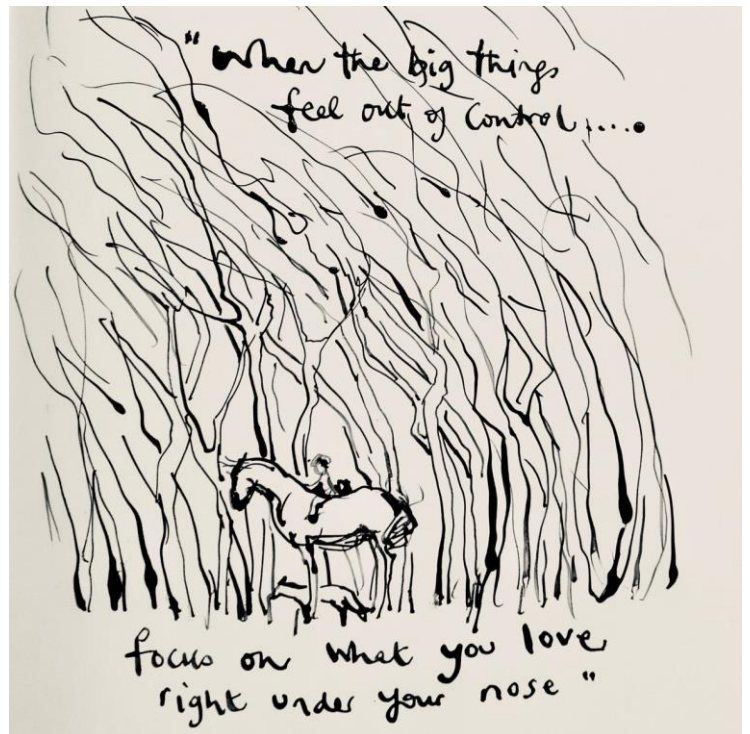 "When the big things
feel out of control.....
focus on what you love
right under your nose"